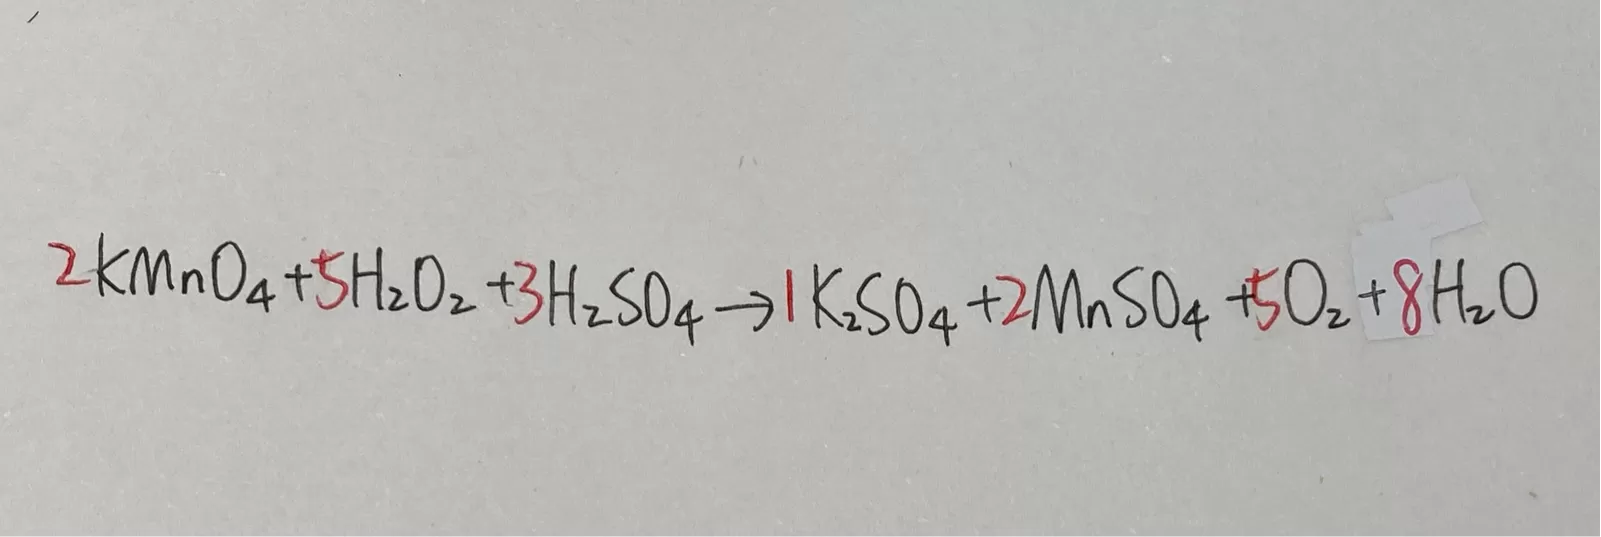 2KMnO₄+5H₂O₂+3H₂SO₄→1K₂SO₄+2MnSO₄+5O₂+8H₂O